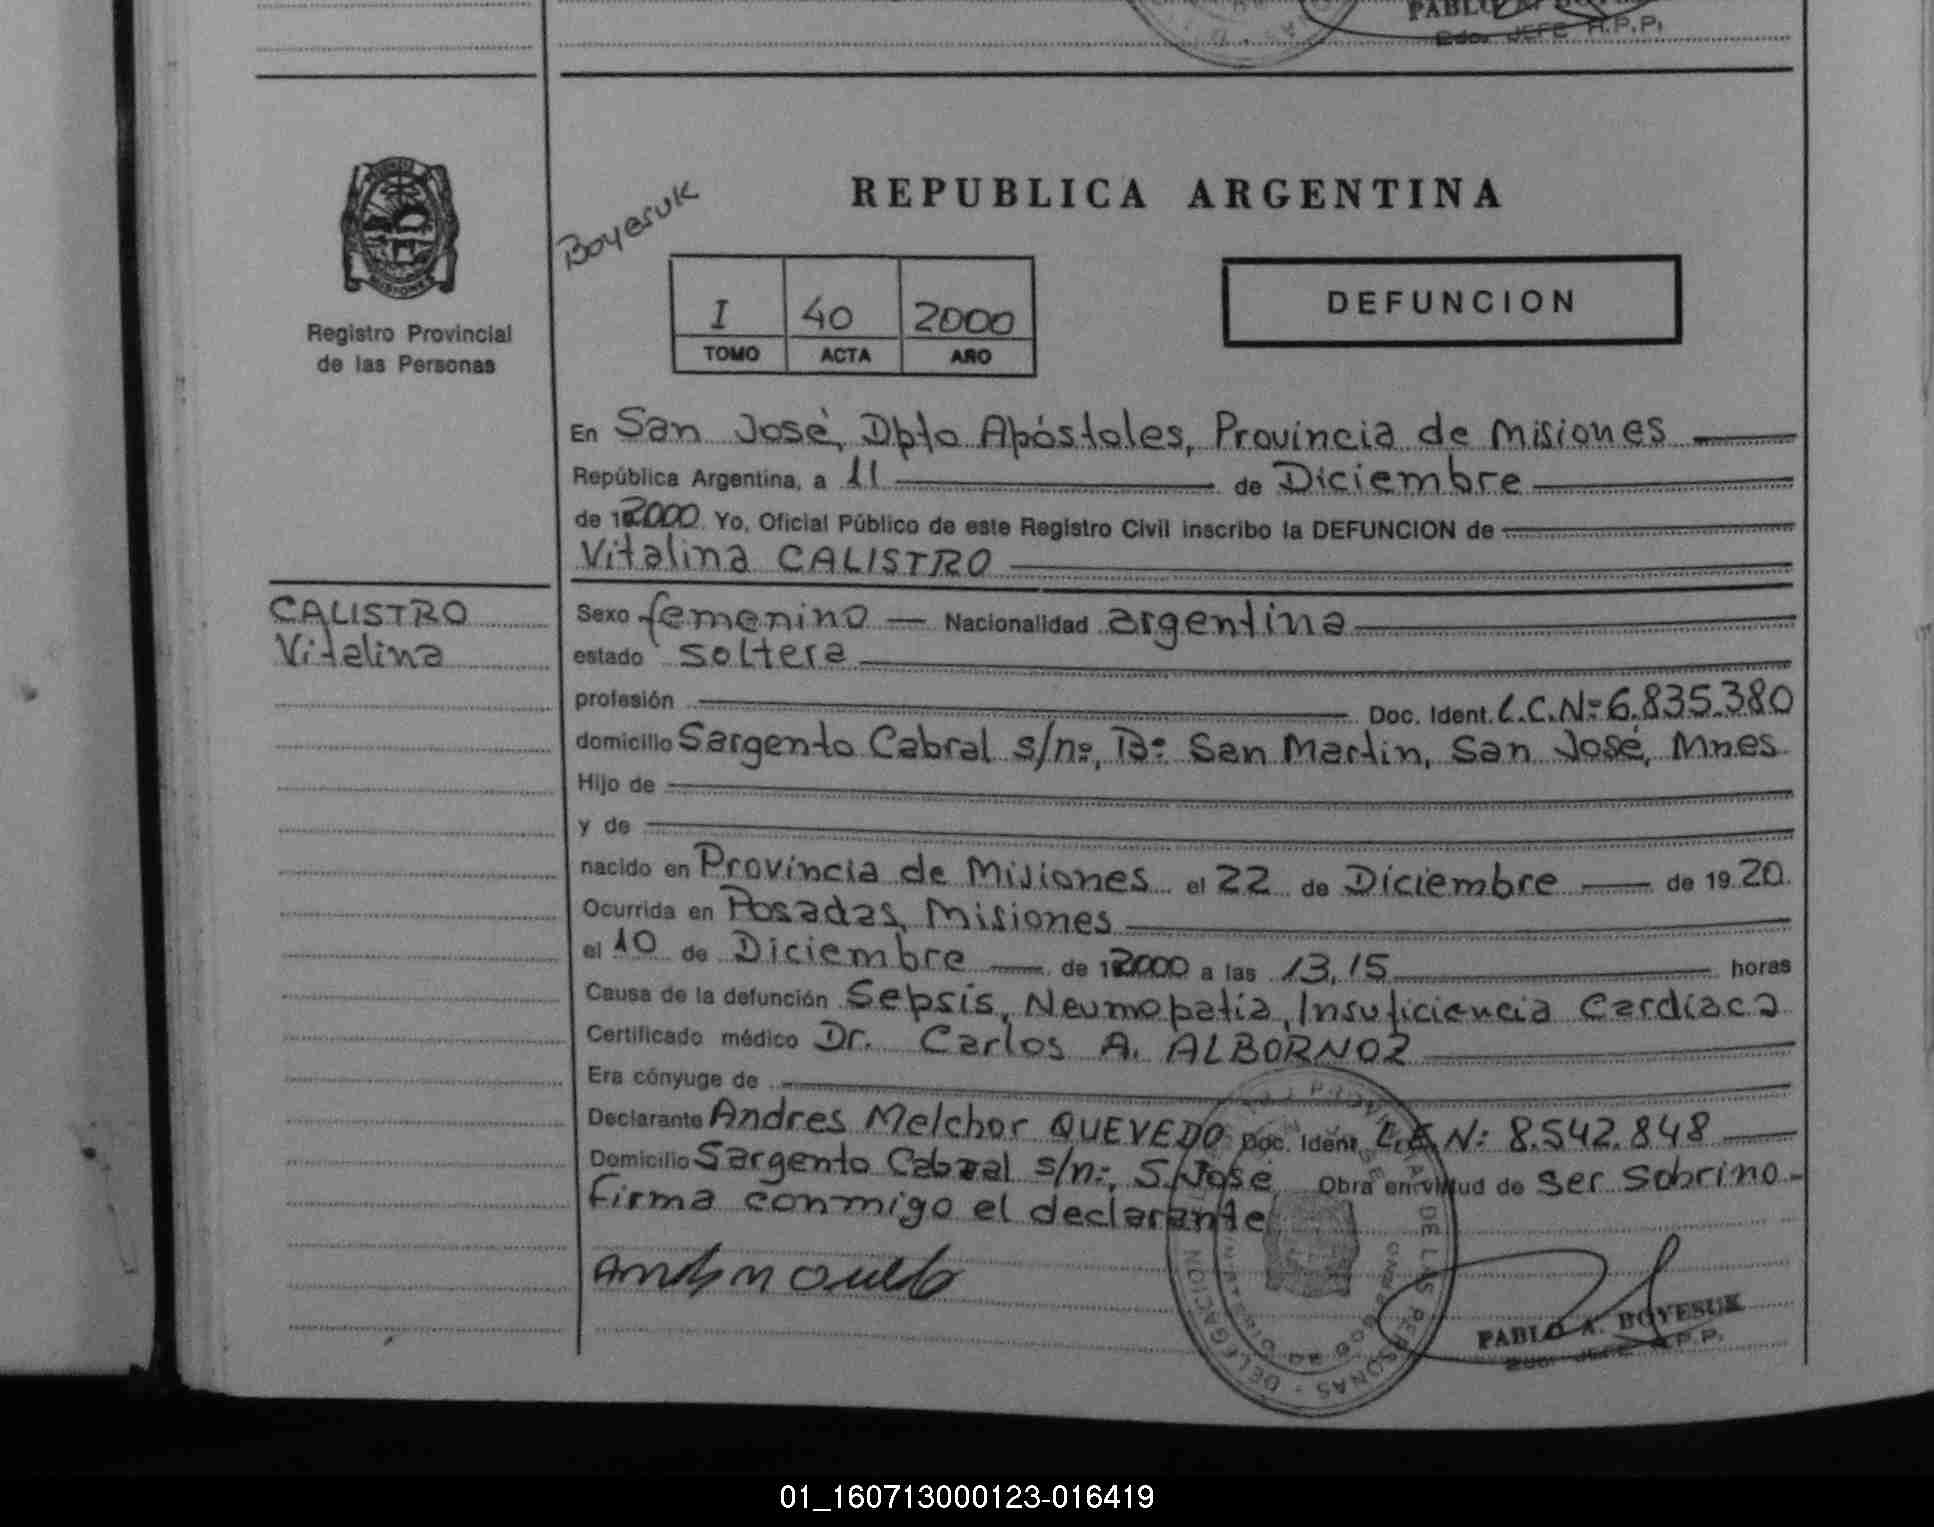 PABLO A. BOYESUK
Edor JEFE R.P.P.
MISIONES
Registro Provincial
de las Personas
Boyesuk
REPUBLICA ARGENTINA
I 40 2000
TOMO ACTA AÑO
DEFUNCION
En San José, Dpto Apóstoles, Provincia de Misiones
República Argentina, a 11 de Diciembre
de 2000 Yo, Oficial Público de este Registro Civil inscribo la DEFUNCION de
Vitalina CALISTRO
CALISTRO
Vitalina
Sexo femenino — Nacionalidad argentina
estado soltera
profesión Doc. Ident. L.C.Nº 6.835.380
domicilio Sargento Cabral s/nº, Bº San Martin, San José, Mnes
Hijo de
y de
nacido en Provincia de Misiones el 22 de Diciembre — de 1920
Ocurrida en Posadas, Misiones
el 10 de Diciembre — de 2000 a las 13,15 horas
Causa de la defunción Sepsis, Neumopatia, Insuficiencia Cardíaca
Certificado médico Dr. Carlos A. ALBORNOZ
Era cónyuge de
Declarante Andres Melchor QUEVEDO Doc. Ident. L.E.Nº 8.542.848
Domicilio Sargento Cabral s/nº, S. José, Obra en virtud de ser sobrino.-
Firma conmigo el declarante
DE LAS PERSONAS - DELEGACION
PABLO A. BOYESUK
Edor JEFE R.P.P.
01_160713000123-016419